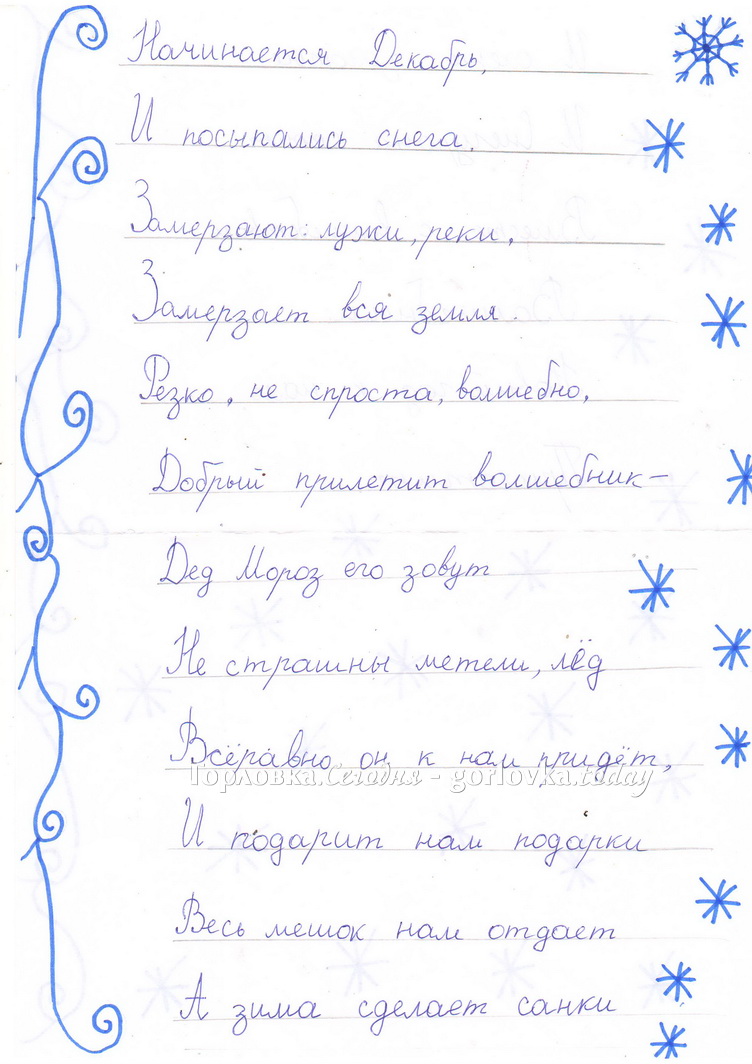 Начинается Декабрь,
И посыпались снега.
Замерзают: лужи, реки,
Замерзает вся земля.
Резко, не спроста, волшебно,
Добрый прилетит волшебник-
Дед Мороз его зовут
Не страшны метели, лёд
Всёравно он к нам придёт,
Горловка.Сегодня - gorlovka.today
И подарит нам подарки
Весь мешок нам отдает
А зима сделает санки